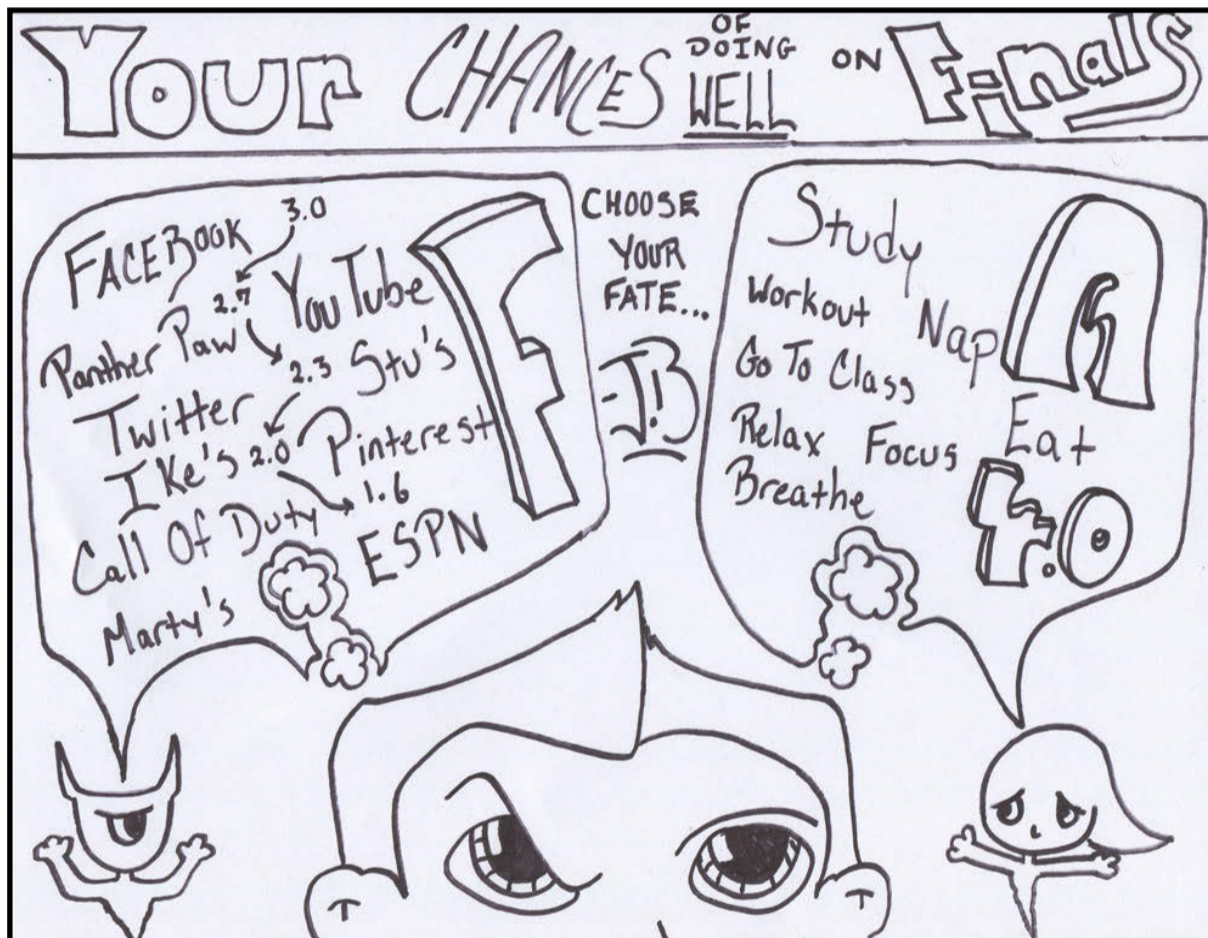 Your CHANCES OF DOING WELL ON Finals
FACEBOOK 3.0
2.7 YouTube
Panther Paw 2.3 Stu's
Twitter
Ike's 2.0 Pinterest
1.6
Call Of Duty ESPN
Marty's
F
CHOOSE
YOUR
FATE...
-J!B
Study
Workout Nap
Go To Class
Relax Focus Eat
Breathe
A
4.0